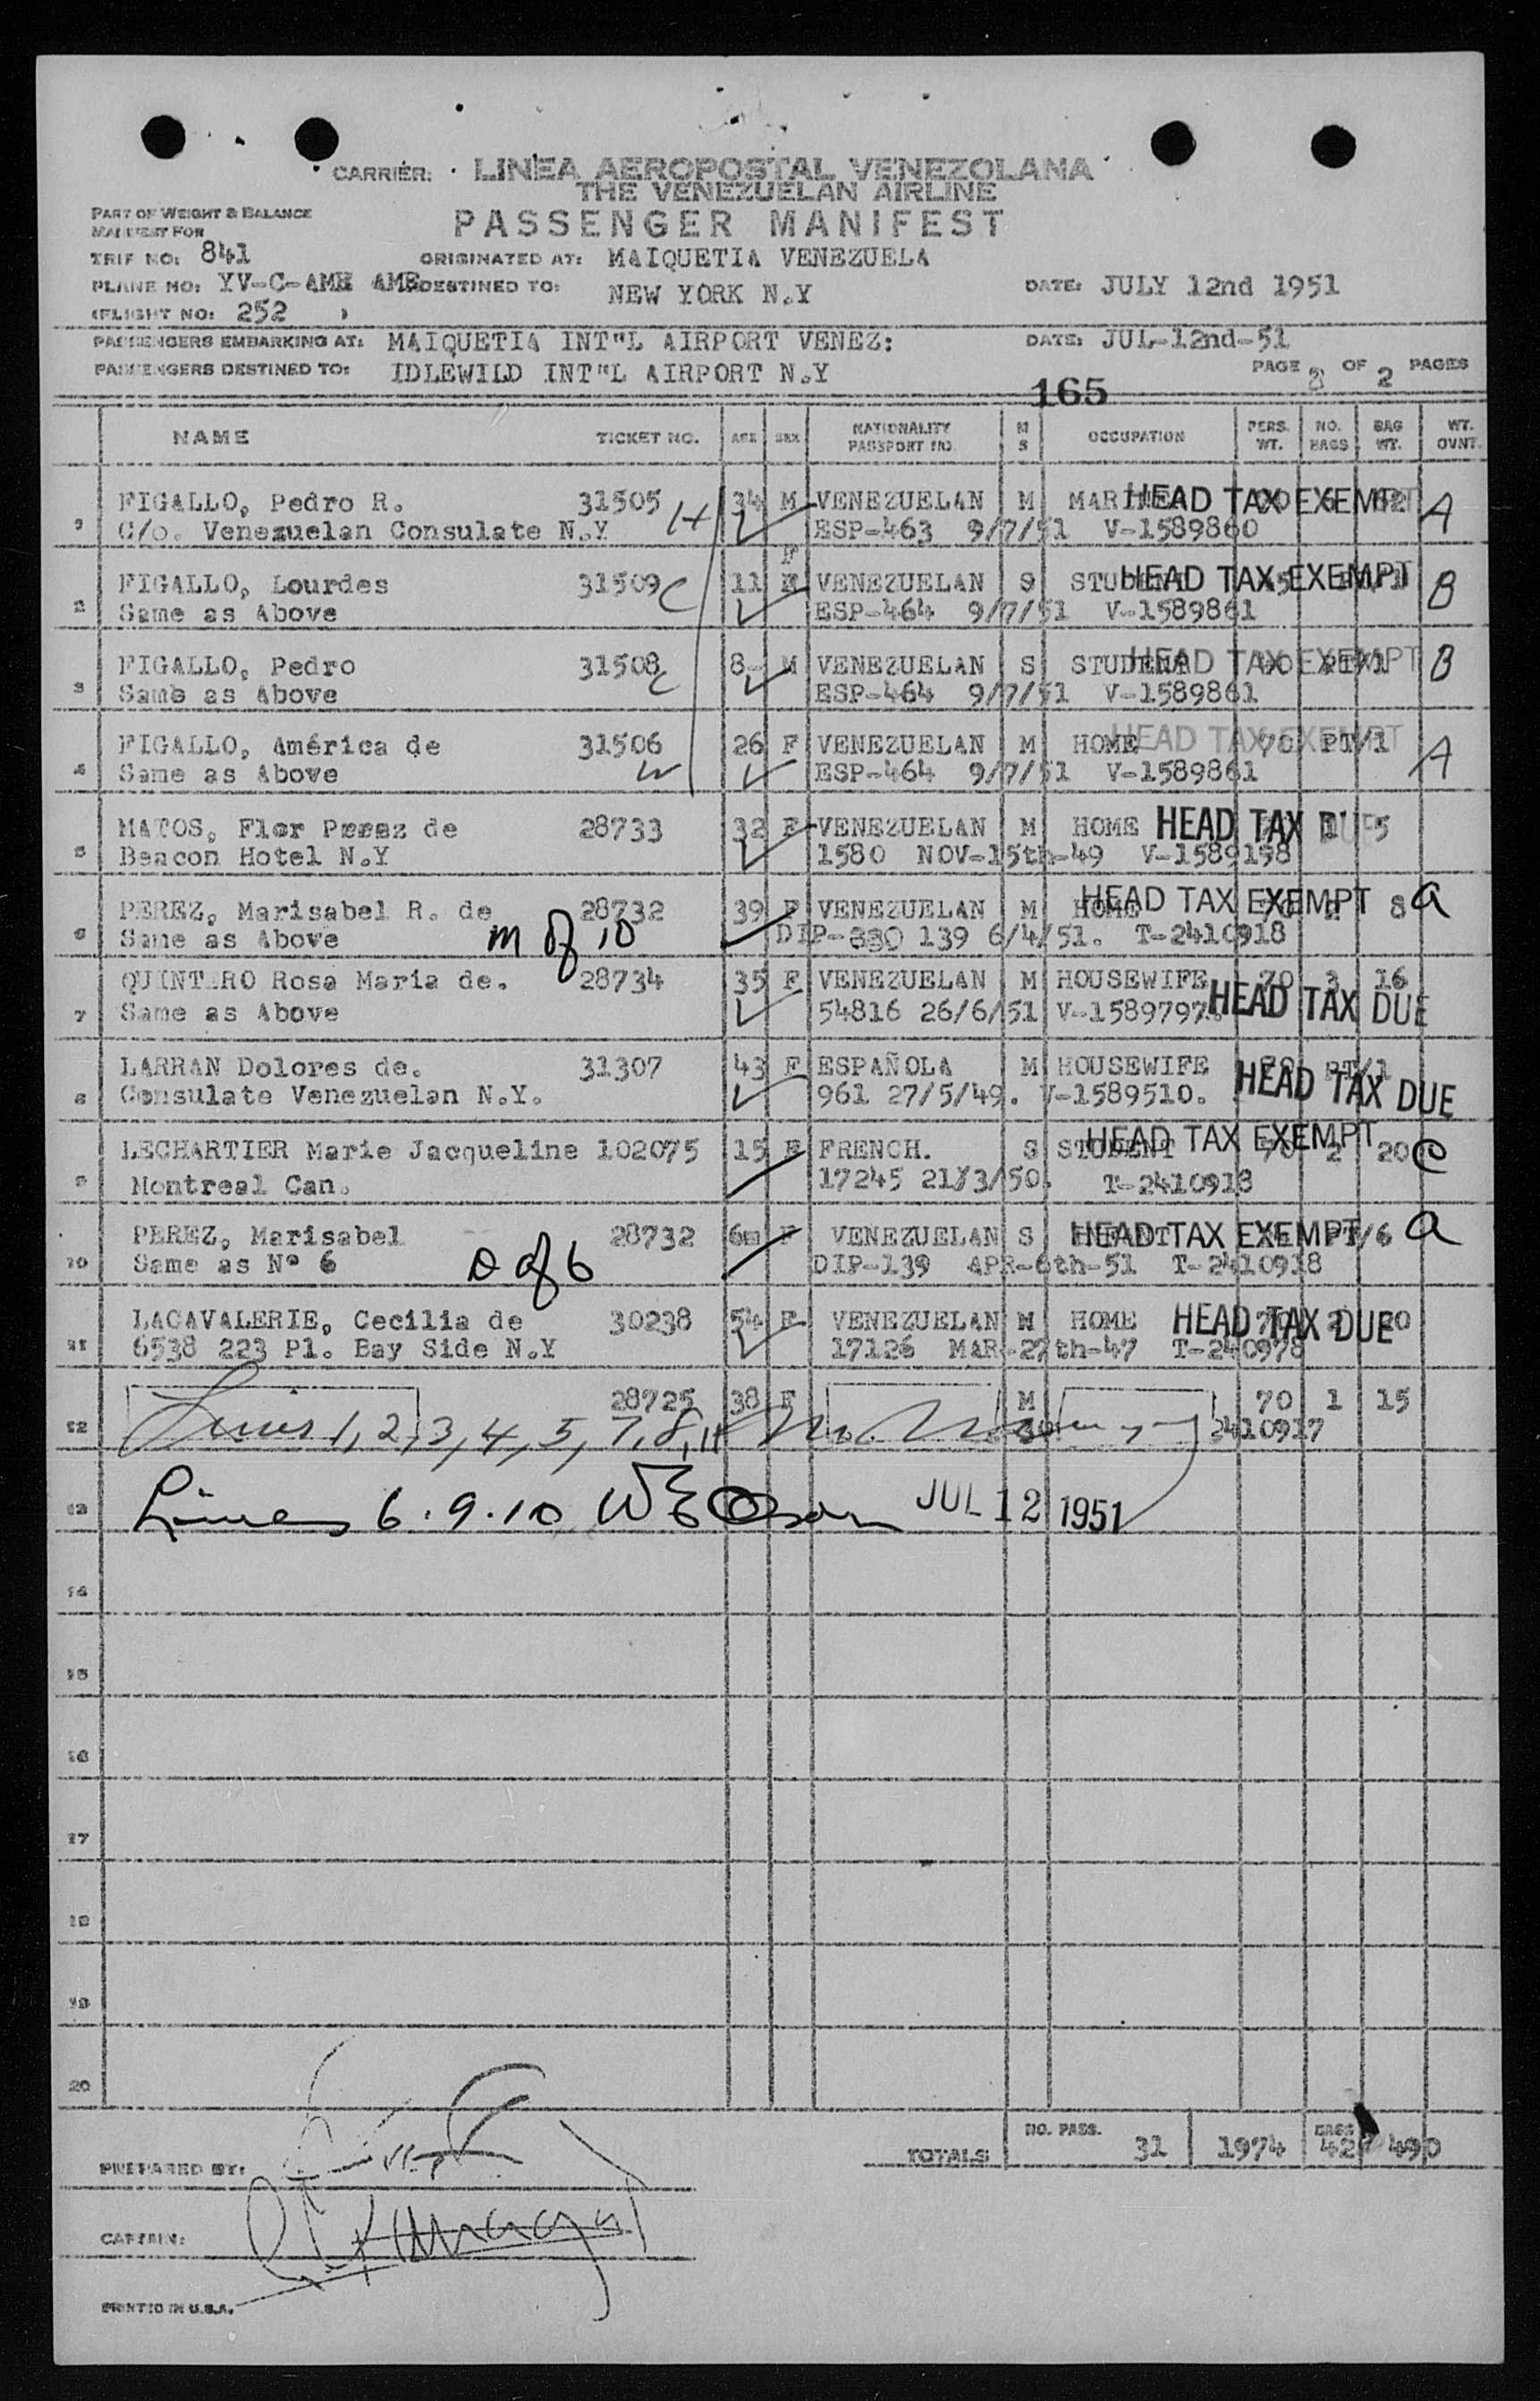 CARRIER: LINEA AEROPOSTAL VENEZOLANA
THE VENEZUELAN AIRLINE
PASSENGER MANIFEST
PART OF WEIGHT & BALANCE
MANIFEST FOR
TRIP NO: 841 ORIGINATED AT: MAIQUETIA VENEZUELA
PLANE NO: YV-C-AME AME DESTINED TO: NEW YORK N.Y DATE: JULY 12nd 1951
(FLIGHT NO: 252 )
PASSENGERS EMBARKING AT: MAIQUETIA INT"L AIRPORT VENEZ: DATE: JUL-12nd-51
PASSENGERS DESTINED TO: IDLEWILD INT"L AIRPORT N.Y PAGE 2 OF 2 PAGES
165
NAME TICKET NO. AGE SEX NATIONALITY PASSPORT NO. M S OCCUPATION PERS. WT. NO. BAGS BAG WT. WT. OVNT.
1 FIGALLO, Pedro R. 31505 H 34 M VENEZUELAN M HEAD TAX EXEMPT A
C/o. Venezuelan Consulate N.Y ESP-463 9/7/51 V-1589860
F
2 FIGALLO, Lourdes 31509 C 11 VENEZUELAN S STUDENT HEAD TAX EXEMPT B
Same as Above ESP-464 9/7/51 V-1589861
3 FIGALLO, Pedro 31508 C 8- M VENEZUELAN S STUDENT HEAD TAX EXEMPT B
Same as Above ESP-464 9/7/51 V-1589861
4 FIGALLO, América de 31506 W 26 F VENEZUELAN M HOME HEAD TAX EXEMPT 70 PT/1 A
Same as Above ESP-464 9/7/51 V-1589861
5 MATOS, Flor Perez de 28733 32 F VENEZUELAN M HOME HEAD TAX DUE 5
Beacon Hotel N.Y 1580 NOV-15th-49 V-1589198
6 PEREZ, Marisabel R. de 28732 39 F VENEZUELAN M HOME HEAD TAX EXEMPT 8 a
Same as Above m of 10 DIP-330 139 6/4/51. T-2410918
7 QUINTERO Rosa Maria de. 28734 35 F VENEZUELAN M HOUSEWIFE 70 3 16
Same as Above 54816 26/6/51 V-1589797. HEAD TAX DUE
8 LARRAN Dolores de. 31307 43 F ESPAÑOLA M HOUSEWIFE 70 PT/1
Consulate Venezuelan N.Y. 961 27/5/49. V-1589510. HEAD TAX DUE
9 LECHARTIER Marie Jacqueline 102075 15 F FRENCH. S STUDENT HEAD TAX EXEMPT 70 2 20 C
Montreal Can. 17245 21/3/50. T-2410918
10 PEREZ, Marisabel 28732 6m F VENEZUELAN S HEAD TAX EXEMPT /6 a
Same as Nº 6 D of 6 DIP-139 APR-6th-51 T-2410918
11 LACAVALERIE, Cecilia de 30238 54 F VENEZUELAN HOME HEAD TAX DUE 70 2 20
6538 223 Pl. Bay Side N.Y 17126 MAR-27th-47 T-240978
12 28725 38 F M 70 1 15
Lines 1, 2, 3, 4, 5, 7, 8, 11 2410917
13 Lines 6.9.10 W E Olson JUL 12 1951
14
15
16
17
18
19
20
TOTALS NO. PASS. 31 1974 BAGS 42 490
PREPARED BY:
CAPTAIN:
PRINTED IN U.S.A.